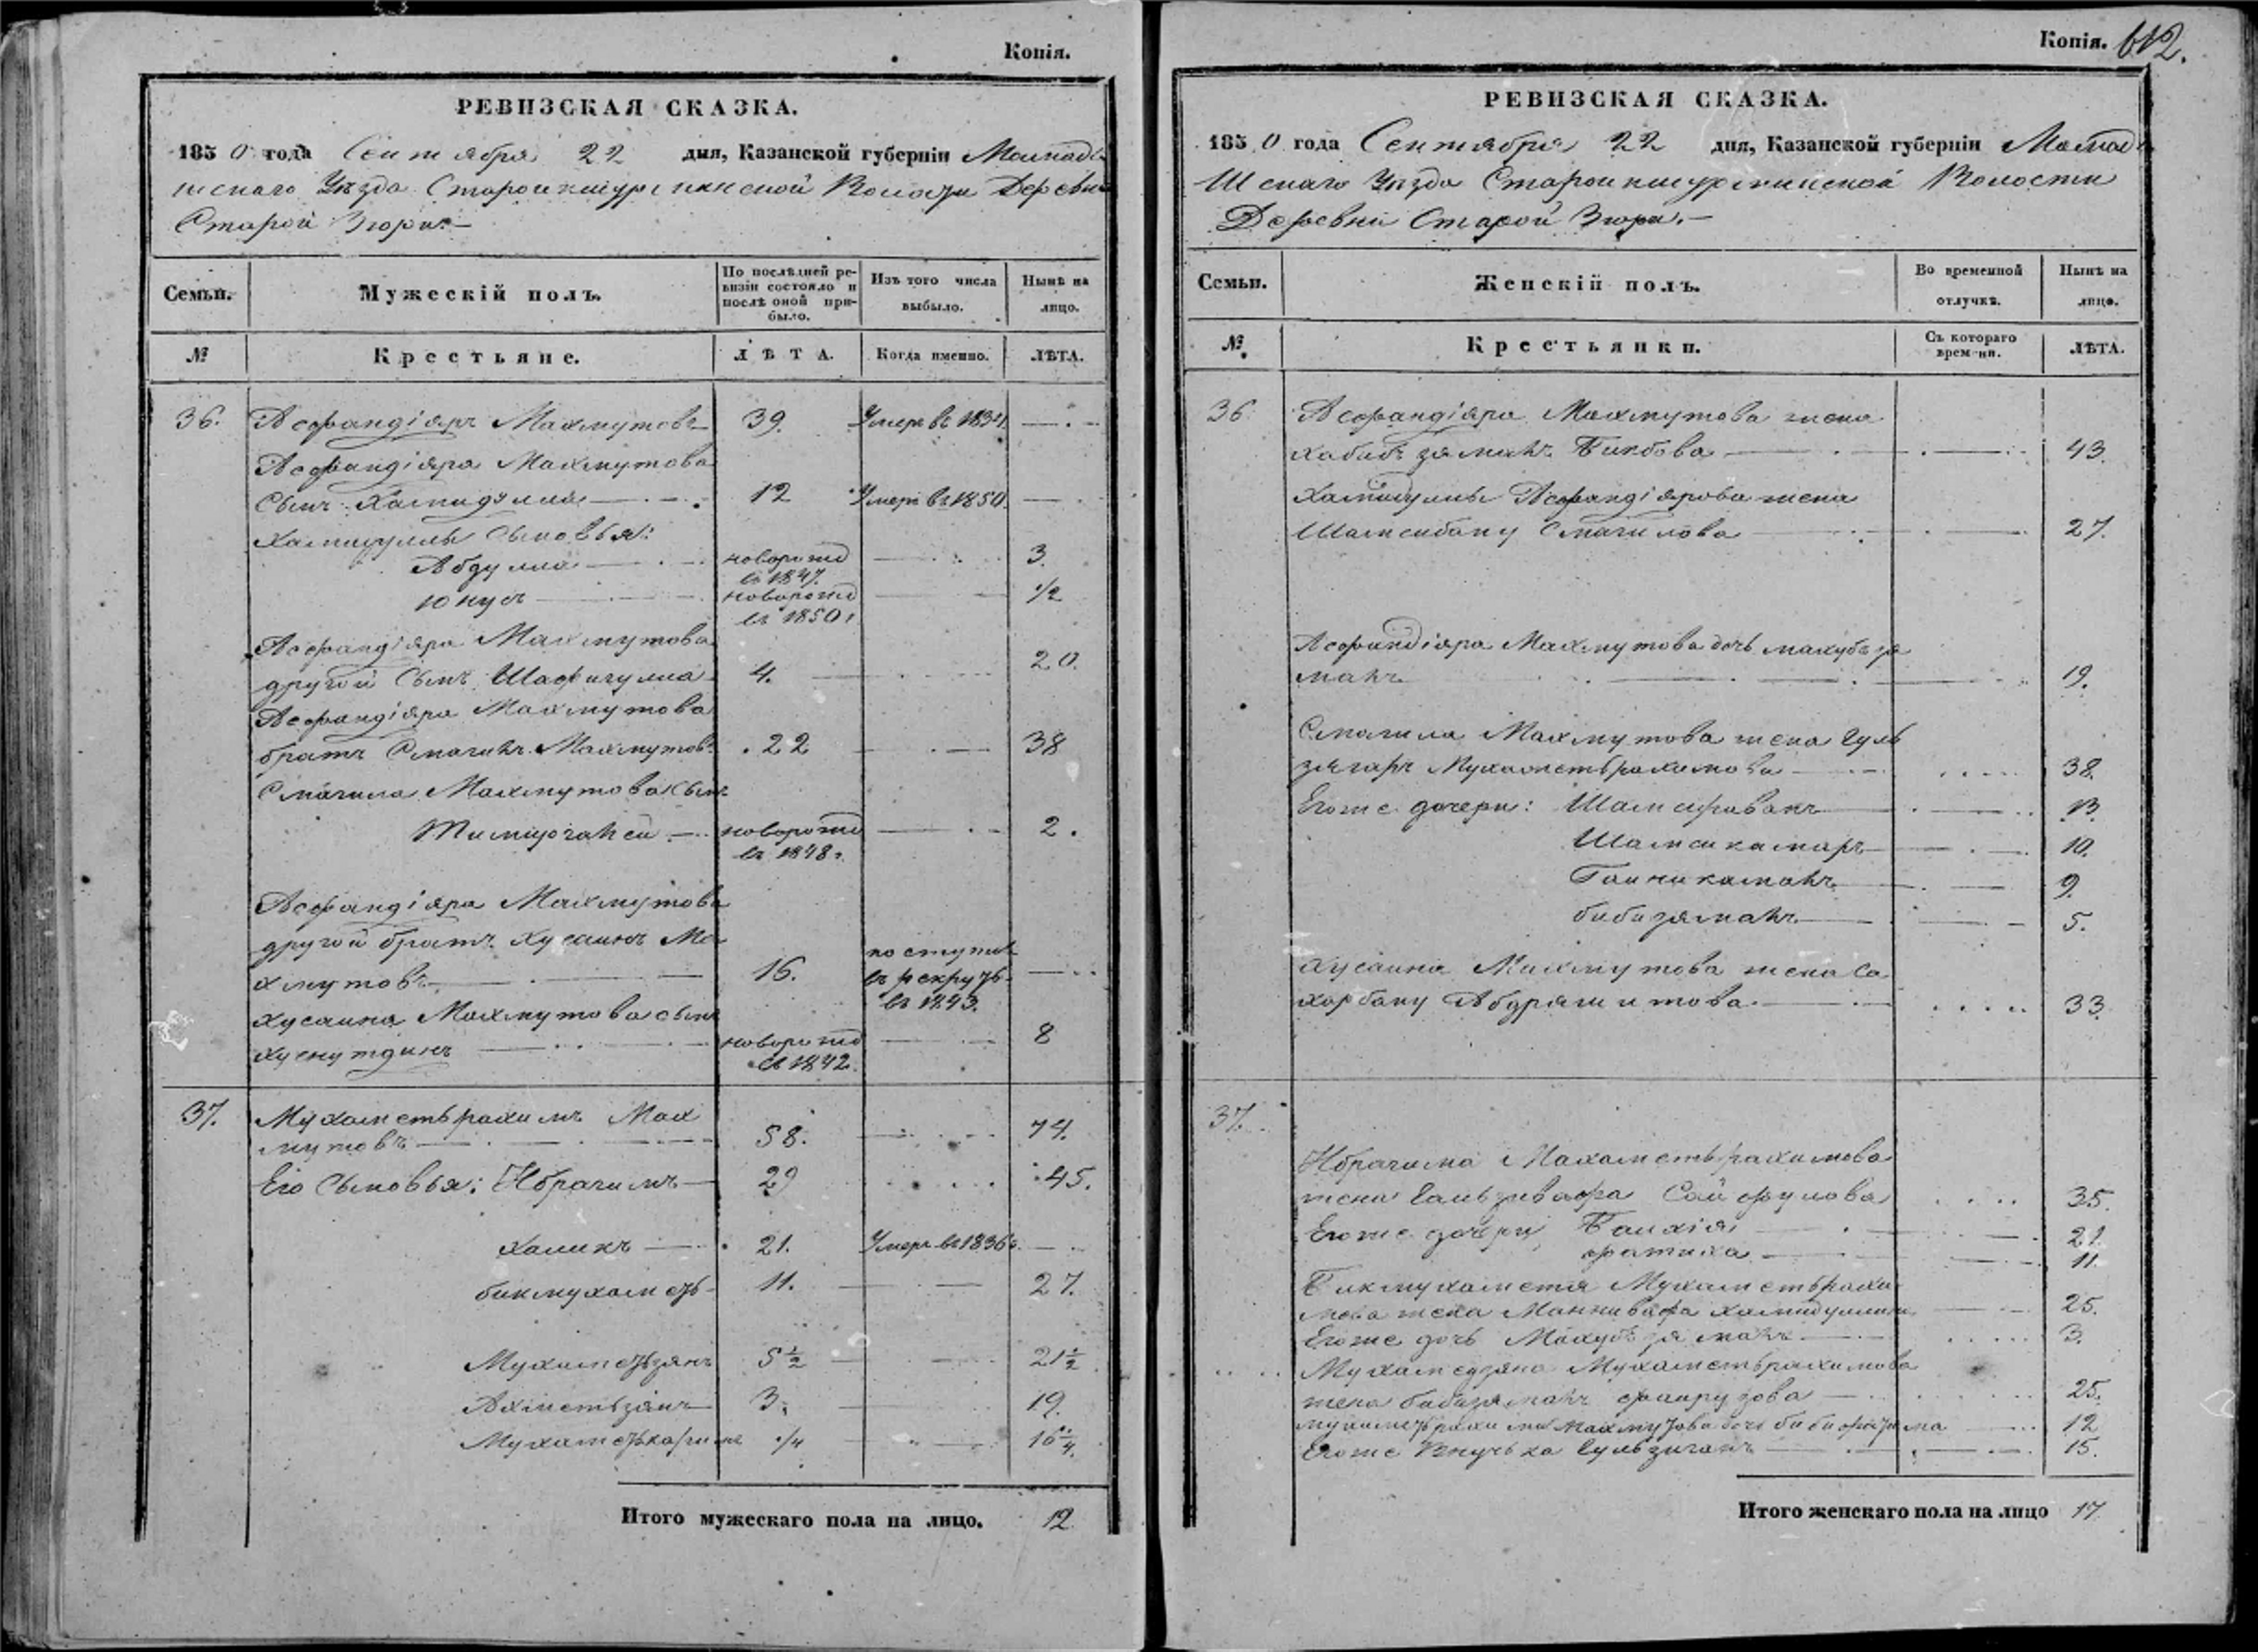 Копія.
РЕВИЗСКАЯ СКАЗКА.
1850 года Сентября 22 дня, Казанской губерніи Мамады
шскаго Уѣзда Волости Деревни
Старой Зюри.—
Семьи.
Мужескій полъ.
По послѣдней ре-
визіи состояло и
послѣ оной при-
было.
Изъ того числа
выбыло.
Нынѣ на
лицо.
№
Крестьяне.
ЛѢТА.
Когда именно.
ЛѢТА.
36. Асфандіяръ Махмутовъ 39. Умеръ въ 1834 —
Асфандіяра Махмутова
сынъ Хамидулла 12 Умеръ въ 1850. —
Хамидуллы Сыновья:
Абдулла новорожд 3.
въ 1847.
Юнусъ новорожд 1/2
въ 1850.
Асфандіяра Махмутова
другой Сынъ Шафигулла 4. 20.
Асфандіяра Махмутова
братъ Смагилъ Махмутовъ 22 38
Смагила Махмутова Сынъ
новорожд 2.
въ 1848.
Асфандіяра Махмутова
другой братъ Хусаинъ Ма
хмутовъ 16. поступилъ
въ рекруты
въ 1843.
Хусаина Махмутова сынъ
Хуснутдинъ новорожд 8
въ 1842.
37. Мухаметьрахимъ Мах
мутовъ 58. 74.
Его Сыновья: Ибрагимъ 29 45.
Халикъ 21. Умеръ въ 1836 —
бикмухаметь 11. 27.
Мухаметьзянъ 5 1/2 21 1/2
Ахметьзянъ 3. 19.
Мухаметькаримъ 1/4 16 1/4.
Итого мужескаго пола на лицо. 12
Копія. 612.
РЕВИЗСКАЯ СКАЗКА.
1850 года Сентября 22 дня, Казанской губерніи Мамады
шскаго Уѣзда Волости
Деревни Старой Зюри.—
Семьи.
Женскій полъ.
Во временной
отлучкѣ.
Нынѣ на
лицо.
№
Крестьянки.
Съ котораго
времени.
ЛѢТА.
36. Асфандіяра Махмутова жена
Хабибъзямалъ Бикбова 43.
Хамидуллы Асфандіярова жена
Шамсибану Смагилова 27.
Асфандіяра Махмутова дочь махубъзя
малъ 19.
Смагила Махмутова жена Гуль
зягаръ Мухаметьрахимова 38.
Егоже дочери: 13.
Шамсикамаръ 10.
9.
бибизямалъ 5.
Хусаина Махмутова жена Са
хорбану Абдряшитова 33.
37.
Ибрагима Махаметьрахимова
жена Сайфулова 35.
Егоже дочери 21.
фатиха 11.
Бикмухаметя Мухаметьрахи
мова жена Маннивафа Хамидуллина 25.
Егоже дочь Махубъзямалъ 3.
Мухамедзяна Мухаметьрахимова
жена бибизямалъ фаирузова 25.
Мухаметьрахима Махмутова дочь бибифатима 12
Егоже Внучька 15.
Итого женскаго пола на лицо 17